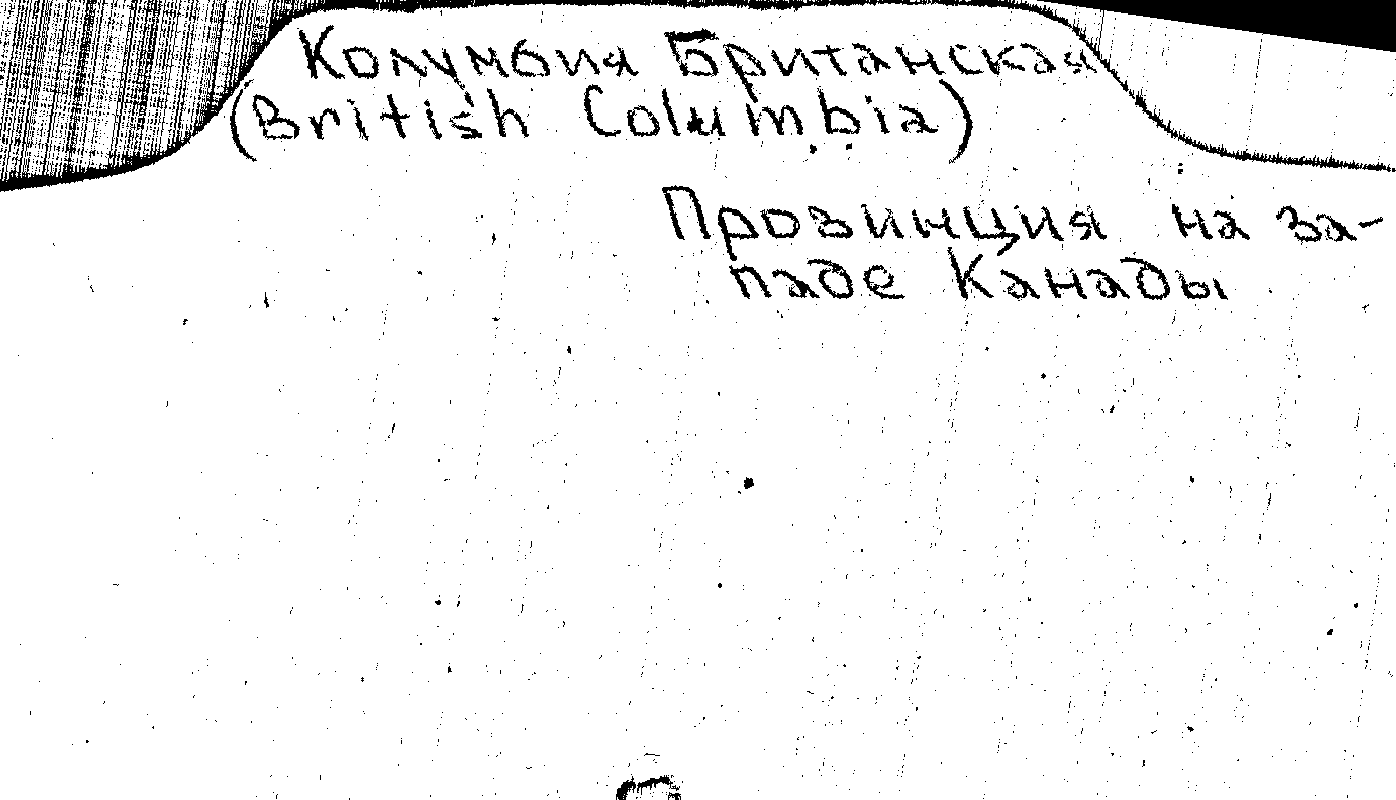 Колумбия Британская
(British Columbia)
Провинция на за-
паде Канады